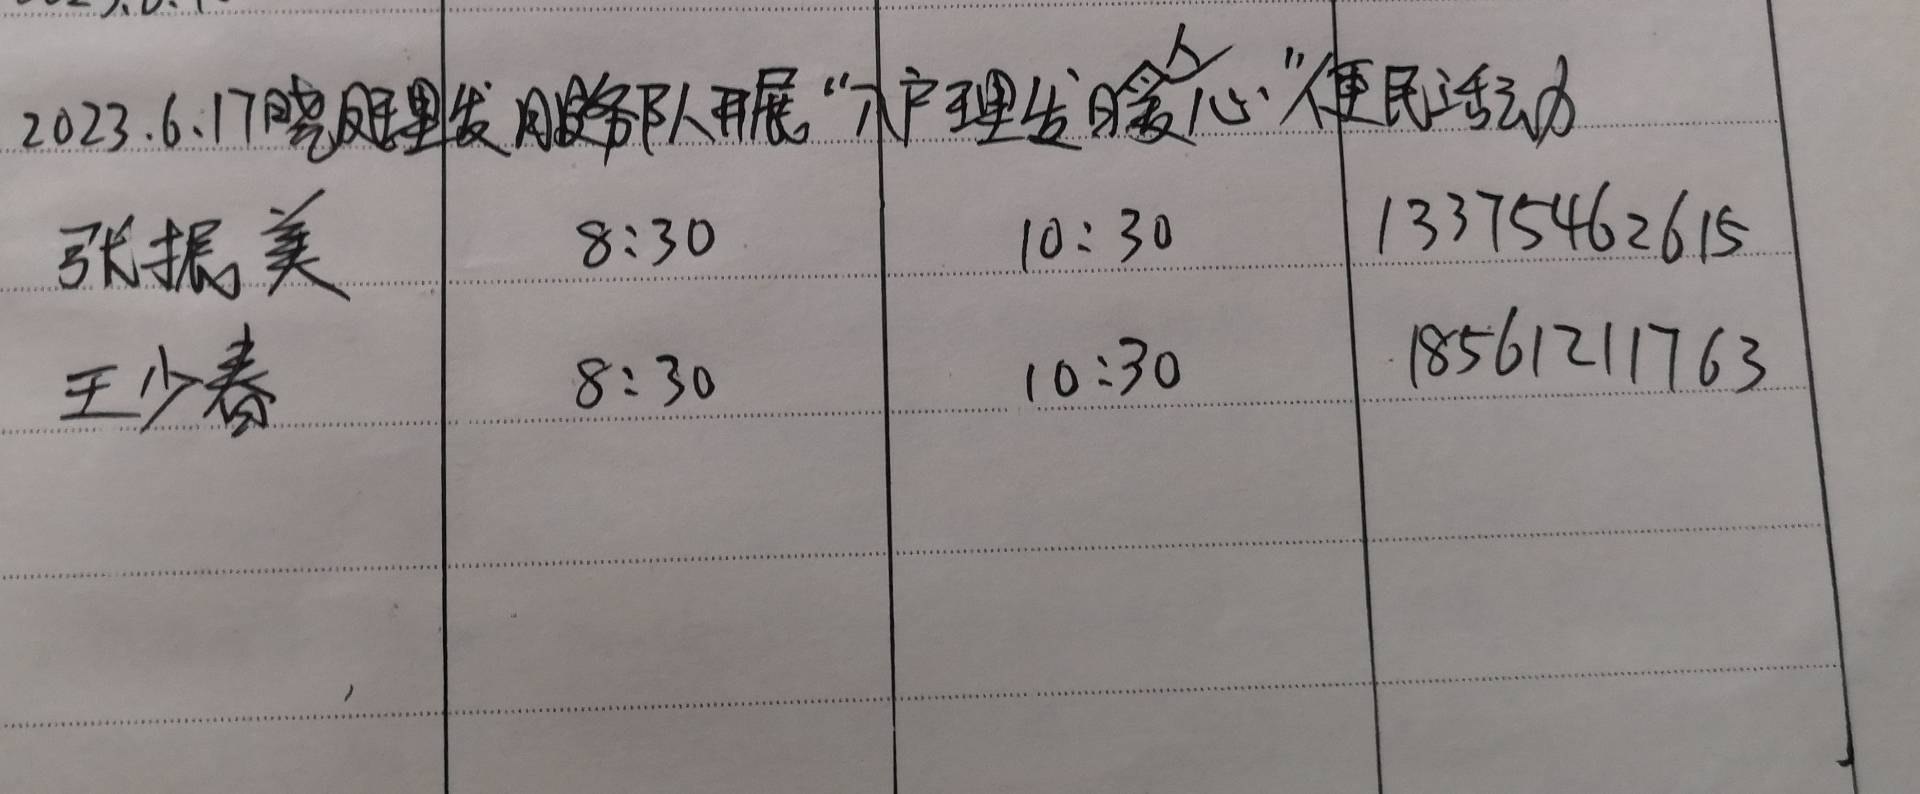 2023.6.17晓晖理发服务队开展“入户理发暖人心”便民活动
张振美 8:30 10:30 13375462615
王少春 8:30 10:30 18561211763